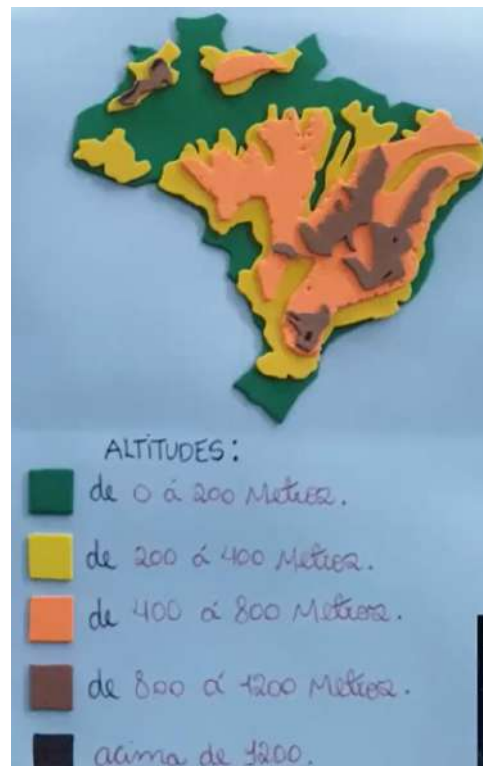 ALTITUDES:
de 0 á 200 Metros.
de 200 á 400 Metros.
de 400 á 800 Metros.
de 800 á 1200 Metros.
acima de 1200.